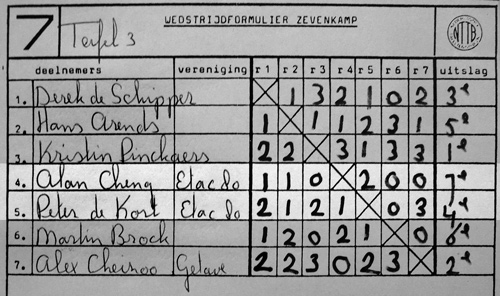 7 Tafel 3 WEDSTRIJDFORMULIER ZEVENKAMP NTTB
deelnemers vereniging r1 r2 r3 r4 r5 r6 r7 uitslag
1. Derek de Schipper X 1 3 2 1 0 2 3e
2. Hans Arends 1 X 1 1 2 3 1 5e
3. Kristin Pinckaers 2 2 X 3 1 3 3 1e
4. Alan Cheng Etac do 1 1 0 X 2 0 0 7e
5. Peter de Kort Etac do 2 1 2 1 X 0 3 4e
6. Martin Brock 1 2 0 2 1 X 0 6e
7. Alex 2 2 3 0 2 3 X 2e